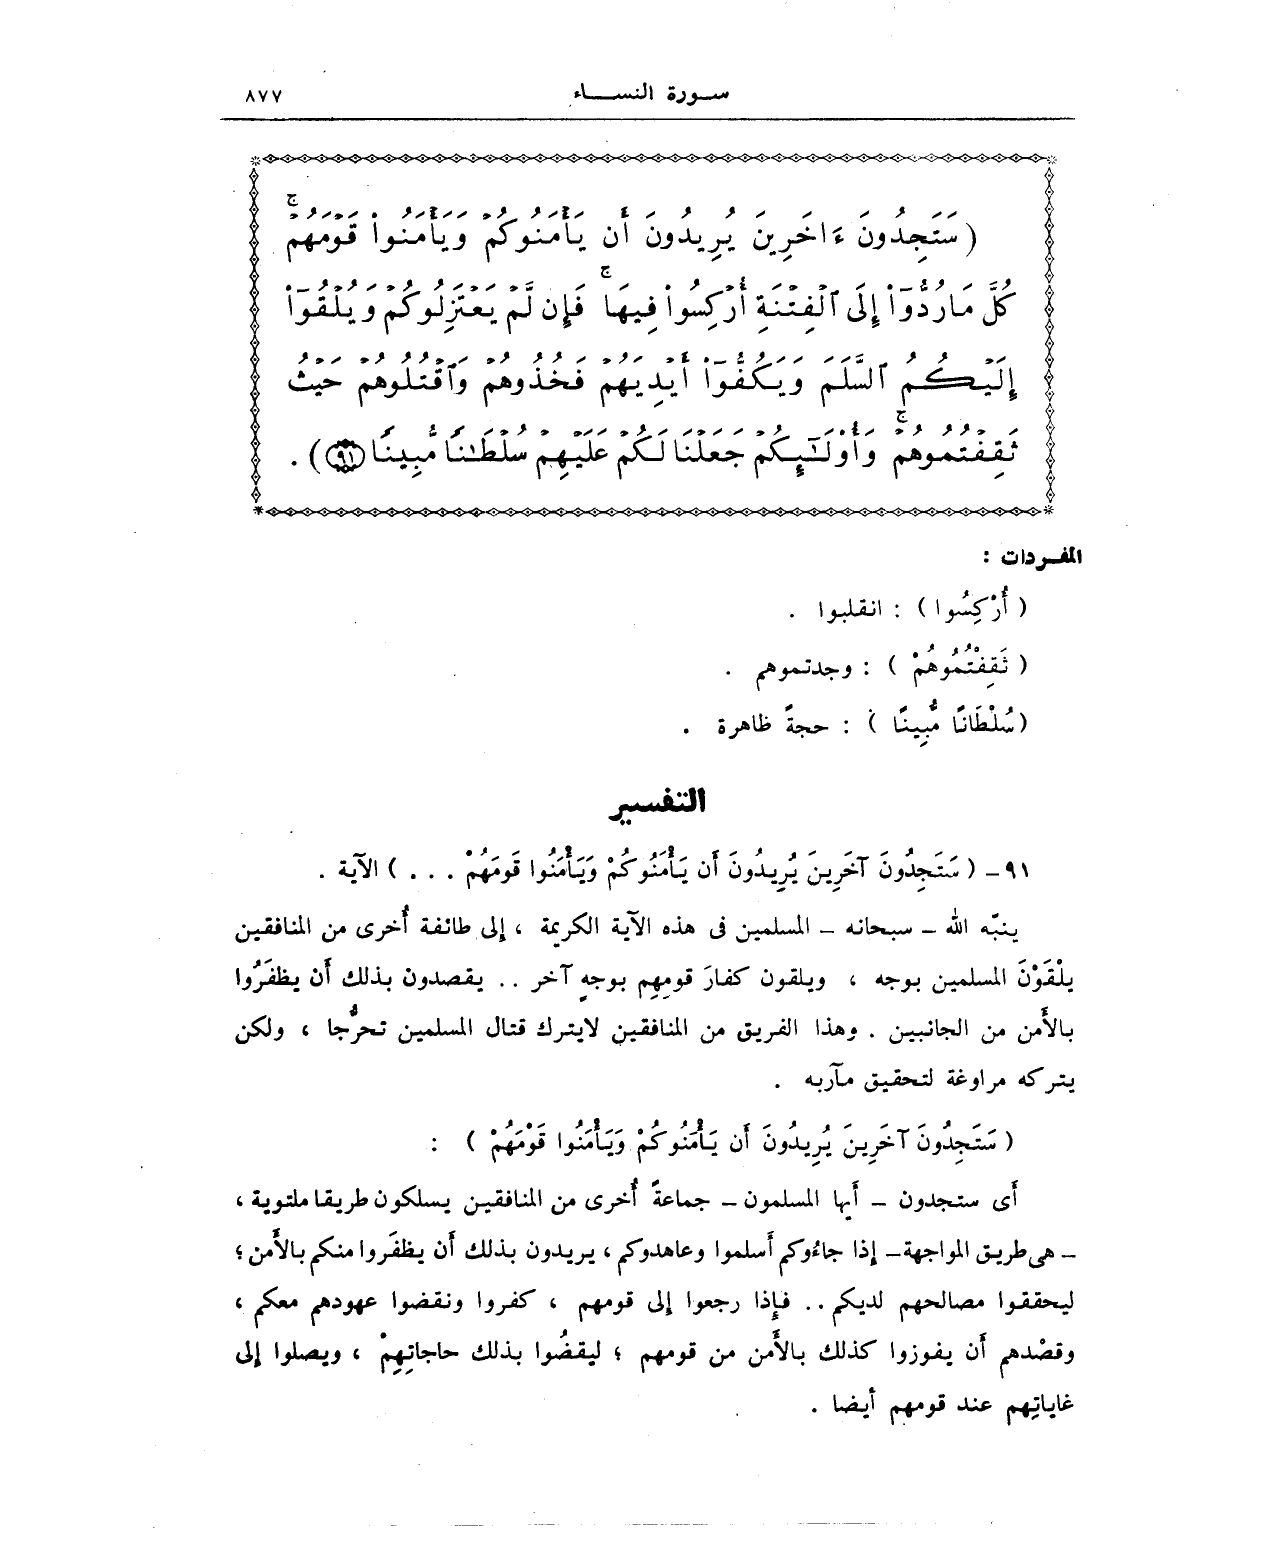 سورة النساء ٨٧٧
( سَتَجِدُونَ ءَاخَرِينَ يُرِيدُونَ أَن يَأْمَنُوكُمْ وَيَأْمَنُوا۟ قَوْمَهُمْ ۚ
كُلَّ مَا رُدُّوٓا۟ إِلَى ٱلْفِتْنَةِ أُرْكِسُوا۟ فِيهَا ۚ فَإِن لَّمْ يَعْتَزِلُوكُمْ وَيُلْقُوٓا۟
إِلَيْكُمُ ٱلسَّلَمَ وَيَكُفُّوٓا۟ أَيْدِيَهُمْ فَخُذُوهُمْ وَٱقْتُلُوهُمْ حَيْثُ
ثَقِفْتُمُوهُمْ ۚ وَأُو۟لَـٰٓئِكُمْ جَعَلْنَا لَكُمْ عَلَيْهِمْ سُلْطَـٰنًا مُّبِينًا ﴿٩١﴾ ) .
المفردات :
( أُرْكِسُوا ) : انقلبوا .
( ثَقِفْتُمُوهُمْ ) : وجدتموهم .
( سُلْطَانًا مُّبِينًا ) : حجةً ظاهرة .
التفسير
٩١ – ( سَتَجِدُونَ آخَرِينَ يُرِيدُونَ أَن يَأْمَنُوكُمْ وَيَأْمَنُوا قَومَهُمْ . . . ) الآية .
ينبّه الله – سبحانه – المسلمين فى هذه الآية الكريمة ، إلى طائفة أُخرى من المنافقين
يلْقَوْنَ المسلمين بوجه ، ويلقون كفارَ قومِهِم بوجهٍ آخر .. يقصدون بذلك أَن يظفَرُوا
بالأَمن من الجانبين . وهذا الفريق من المنافقين لايترك قتال المسلمين تحرُّجا ، ولكن
يتركه مراوغة لتحقيق مآربه .
( سَتَجِدُونَ آخَرِينَ يُرِيدُونَ أَن يَأْمَنُوكُمْ وَيَأْمَنُوا قَوْمَهُمْ ) :
أَى ستجدون – أَيها المسلمون – جماعةً أُخرى من المنافقين يسلكون طريقا ملتوية ،
– هى طريق المواجهة – إذا جاءُوكم أَسلموا وعاهدوكم ، يريدون بذلك أَن يظفَروا منكم بالأَمن ؛
ليحققوا مصالحهم لديكم .. فإِذا رجعوا إلى قومهم ، كفروا ونقضوا عهودهم معكم ،
وقصْدهم أَن يفوزوا كذلك بالأَمن من قومهم ؛ ليقضُوا بذلك حاجاتِهِمْ ، ويصلوا إلى
غاياتِهم عند قومهم أيضا .